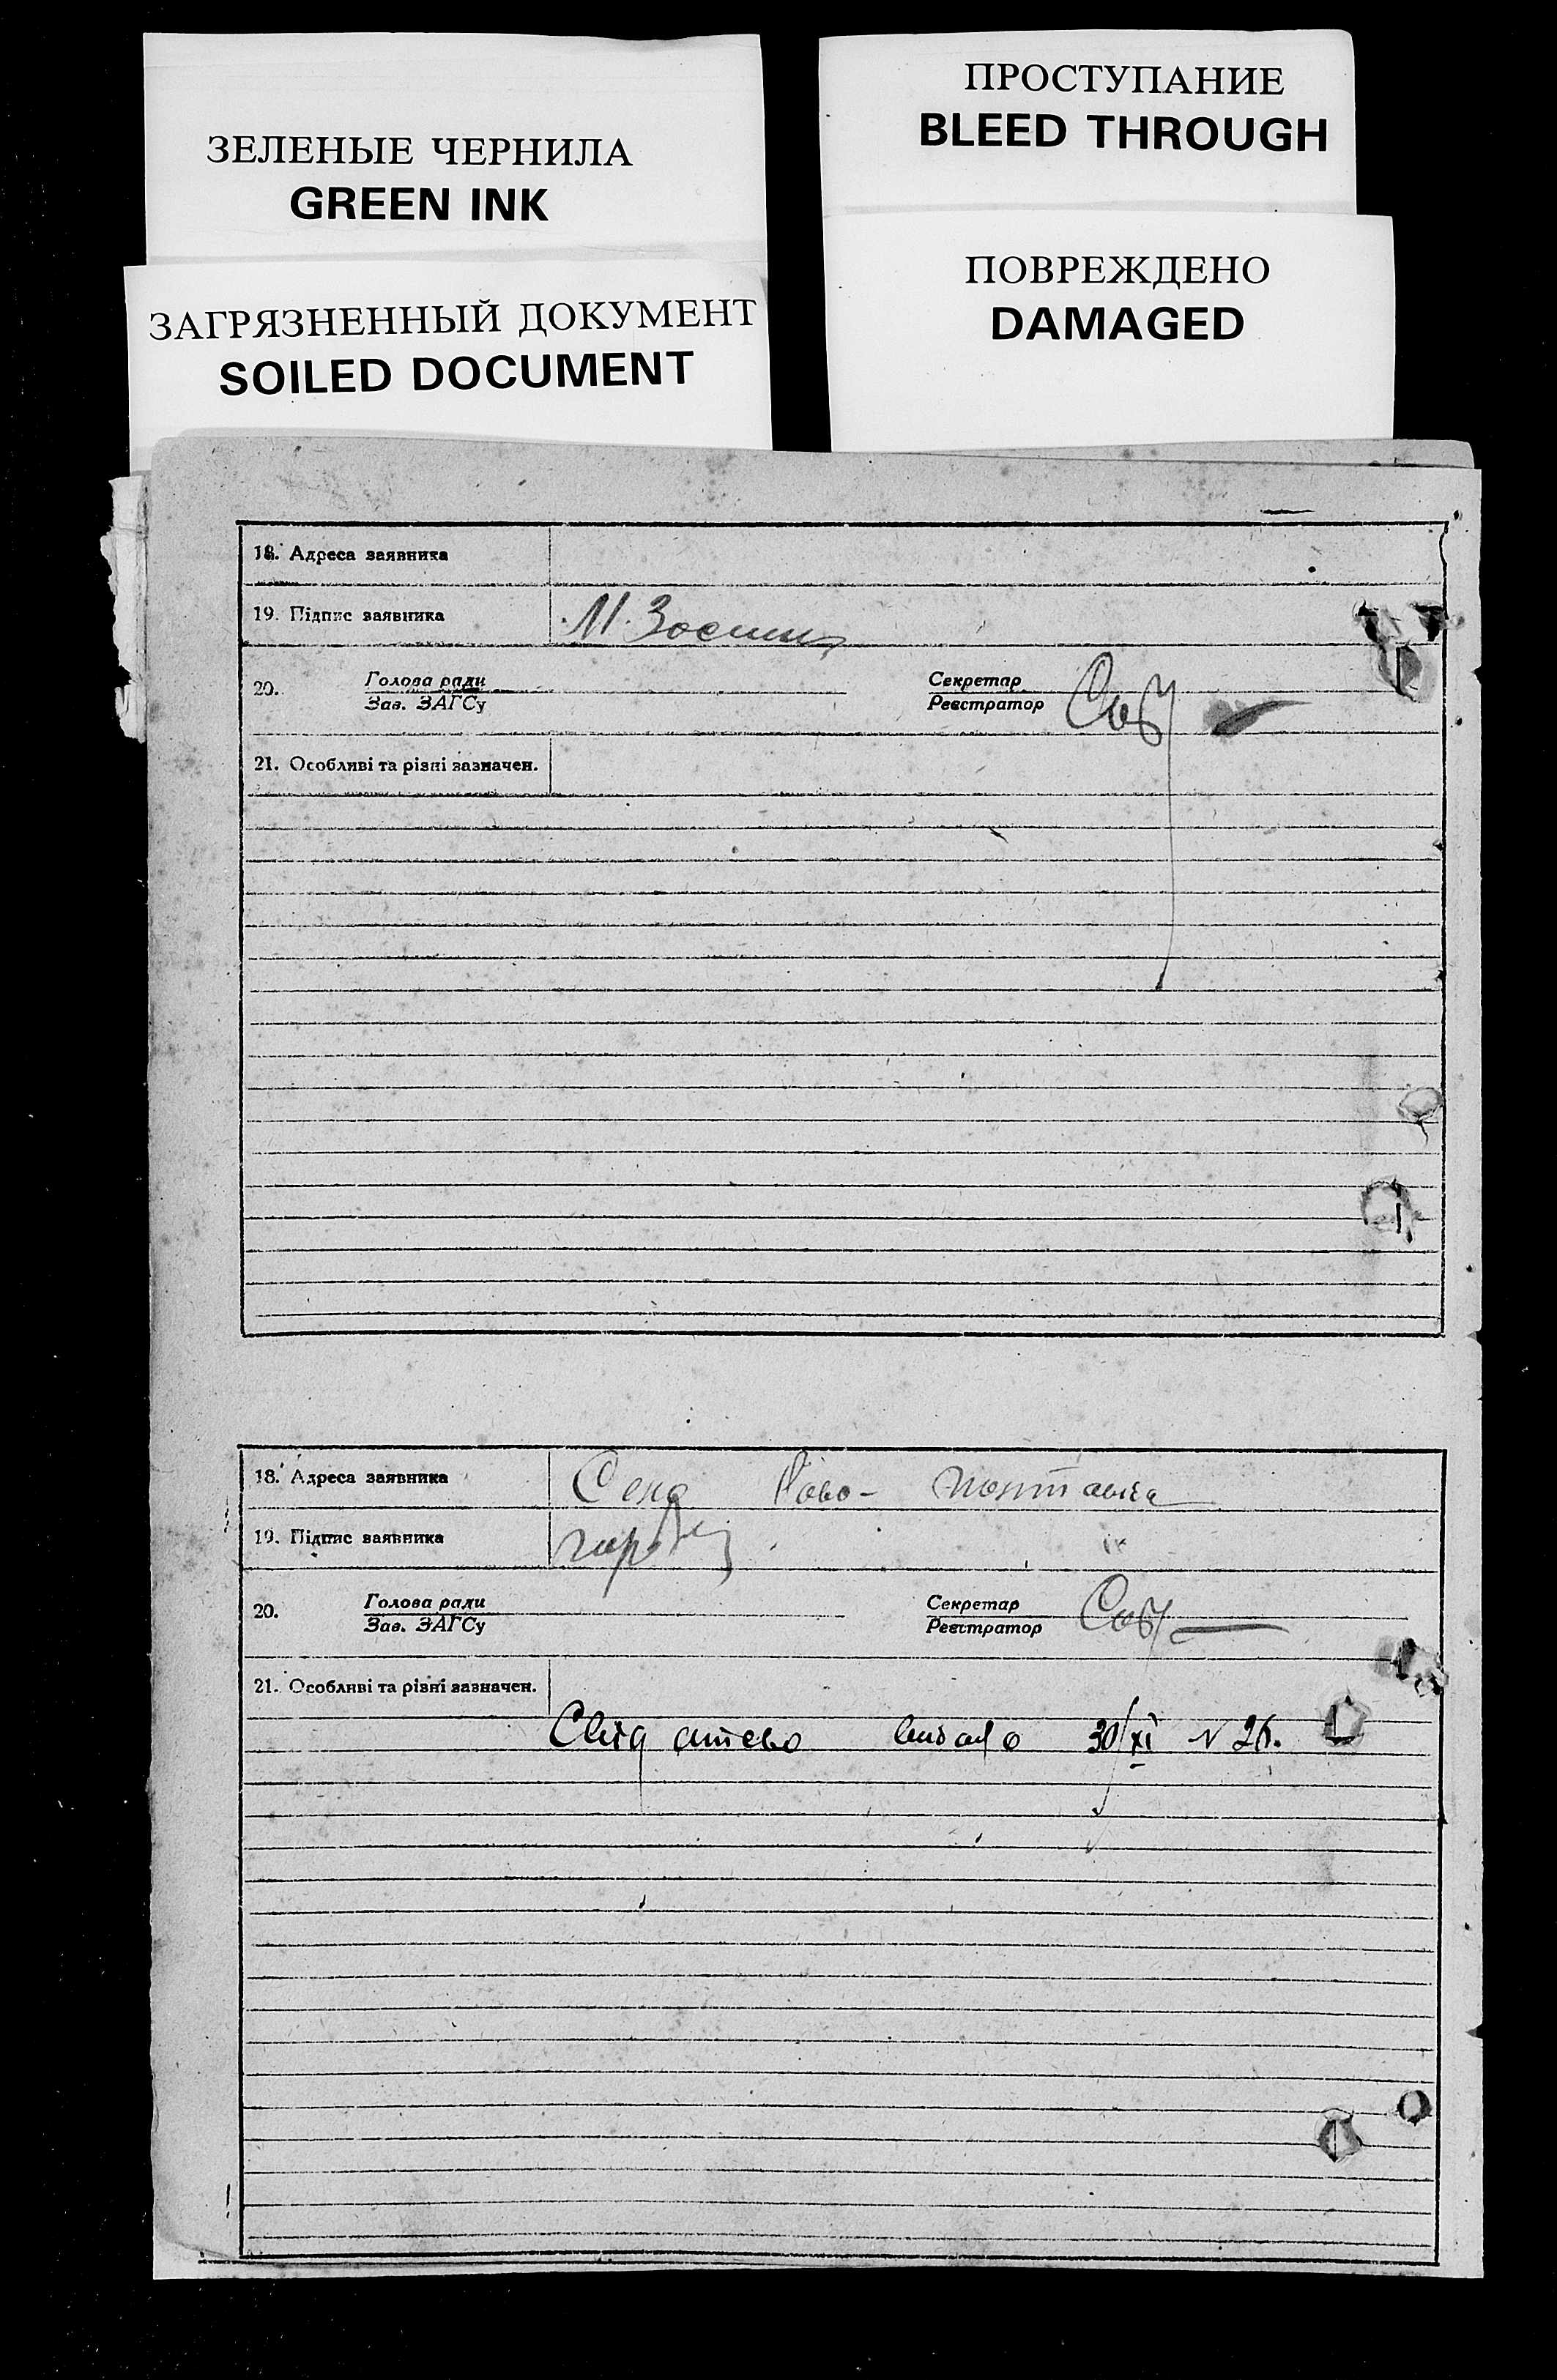 ЗЕЛЕНЫЕ ЧЕРНИЛА
GREEN INK
ЗАГРЯЗНЕННЫЙ ДОКУМЕНТ
SOILED DOCUMENT
ПРОСТУПАНИЕ
BLEED THROUGH
ПОВРЕЖДЕНО
DAMAGED
18. Адреса заявника
19. Підпис заявника М.
20. Голова ради Секретар
Зав. ЗАГСу Реєстратор
21. Особливі та різні зазначен.
18. Адреса заявника Село Ново- Полтавка
19. Підпис заявника
20. Голова ради Секретар
Зав. ЗАГСу Реєстратор
21. Особливі та різні зазначен.
видано 30/XI N 26.